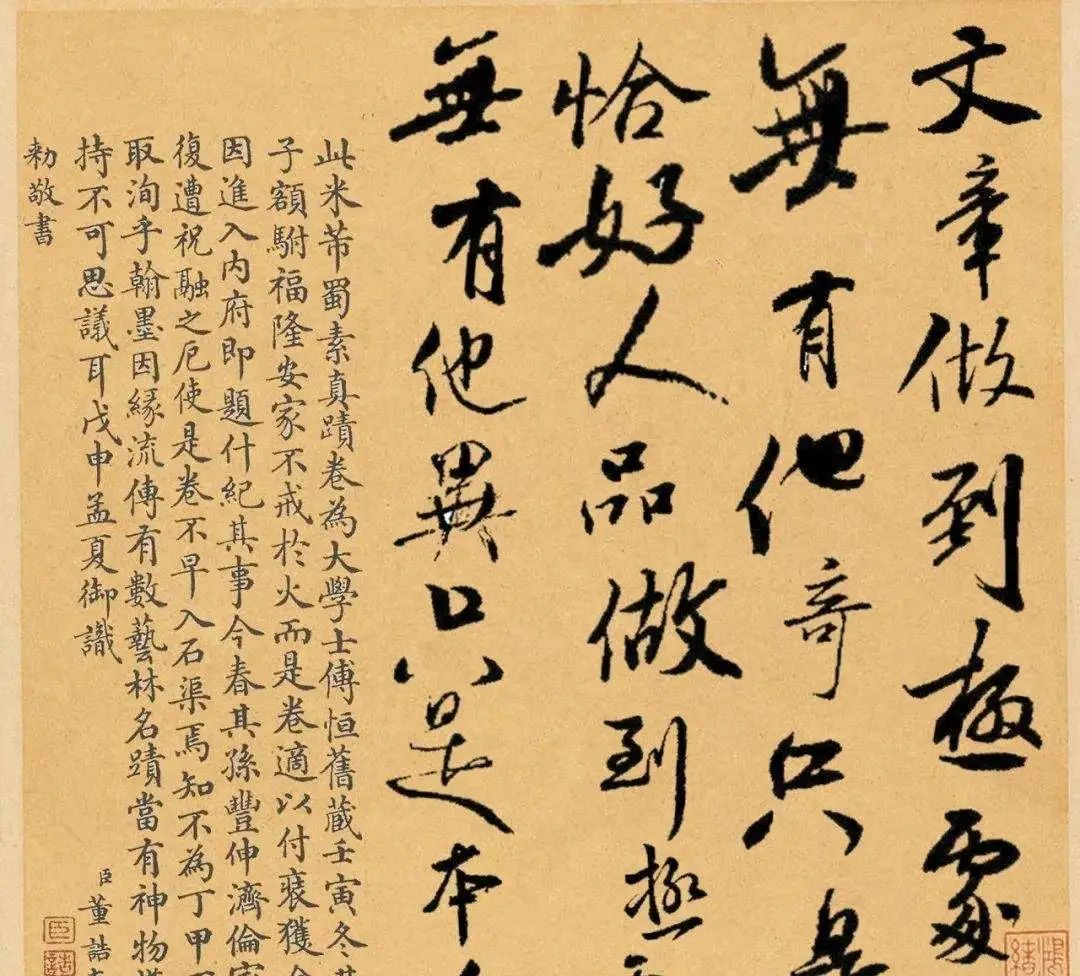 文章做到極處
無有他奇只是
恰好人品做到極
無有他異只是本
此米芾蜀素真蹟卷為大學士傅恒舊藏壬寅冬其
子額駙福隆安家不戒於火而是卷適以付裱獲
因進入內府即題什紀其事今春其孫豐伸濟倫家
復遭祝融之厄使是卷不早入石渠焉知不為丁甲
取洵乎翰墨因緣流傳有數藝林名蹟當有神物
持不可思議耳戊申孟夏御識
臣董誥
勑敬書
臣